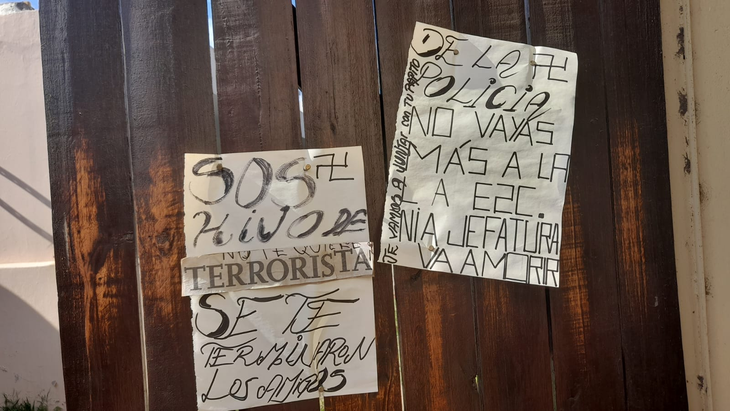 SOS 卐
HIJO DE
NO TE QUIERE
TERRORISTA
SE TE
TERMINARON
LOS AMIGOS
DE LA 卐
POLICIA
NO VAYAS
MÁS A LA
E2C.
NI A JEFATURA
VA A MORIR
TE VAMOS A JUNTAR CON TU PAPITO